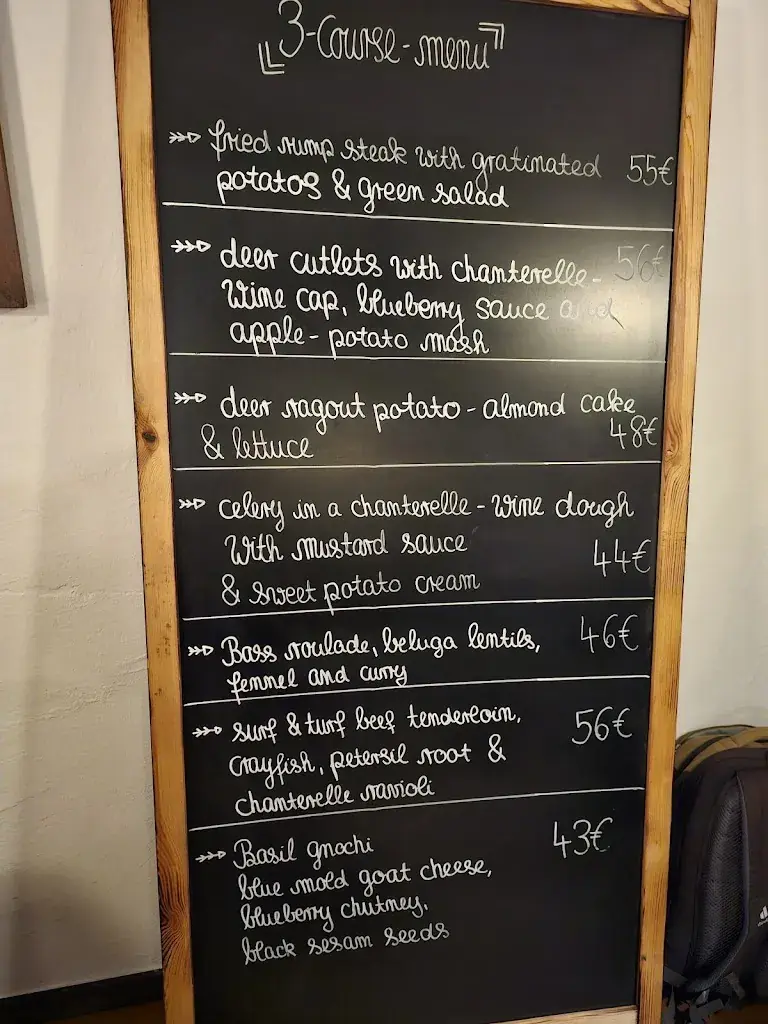 3-Course-menu
fried rump steak with gratinated 55€
potatos & green salad
deer cutlets with chanterelle- 56€
wine cap, blueberry sauce and
apple-potato mash
deer ragout potato-almond cake
& lettuce 48€
celery in a chanterelle-wine dough
with mustard sauce 44€
& sweet potato cream
Bass roulade, beluga lentils, 46€
fennel and curry
surf & turf beef tenderloin, 56€
crayfish, petersil root &
chanterelle ravioli
Basil gnochi 43€
blue mold goat cheese,
blueberry chutney,
black sesam seeds